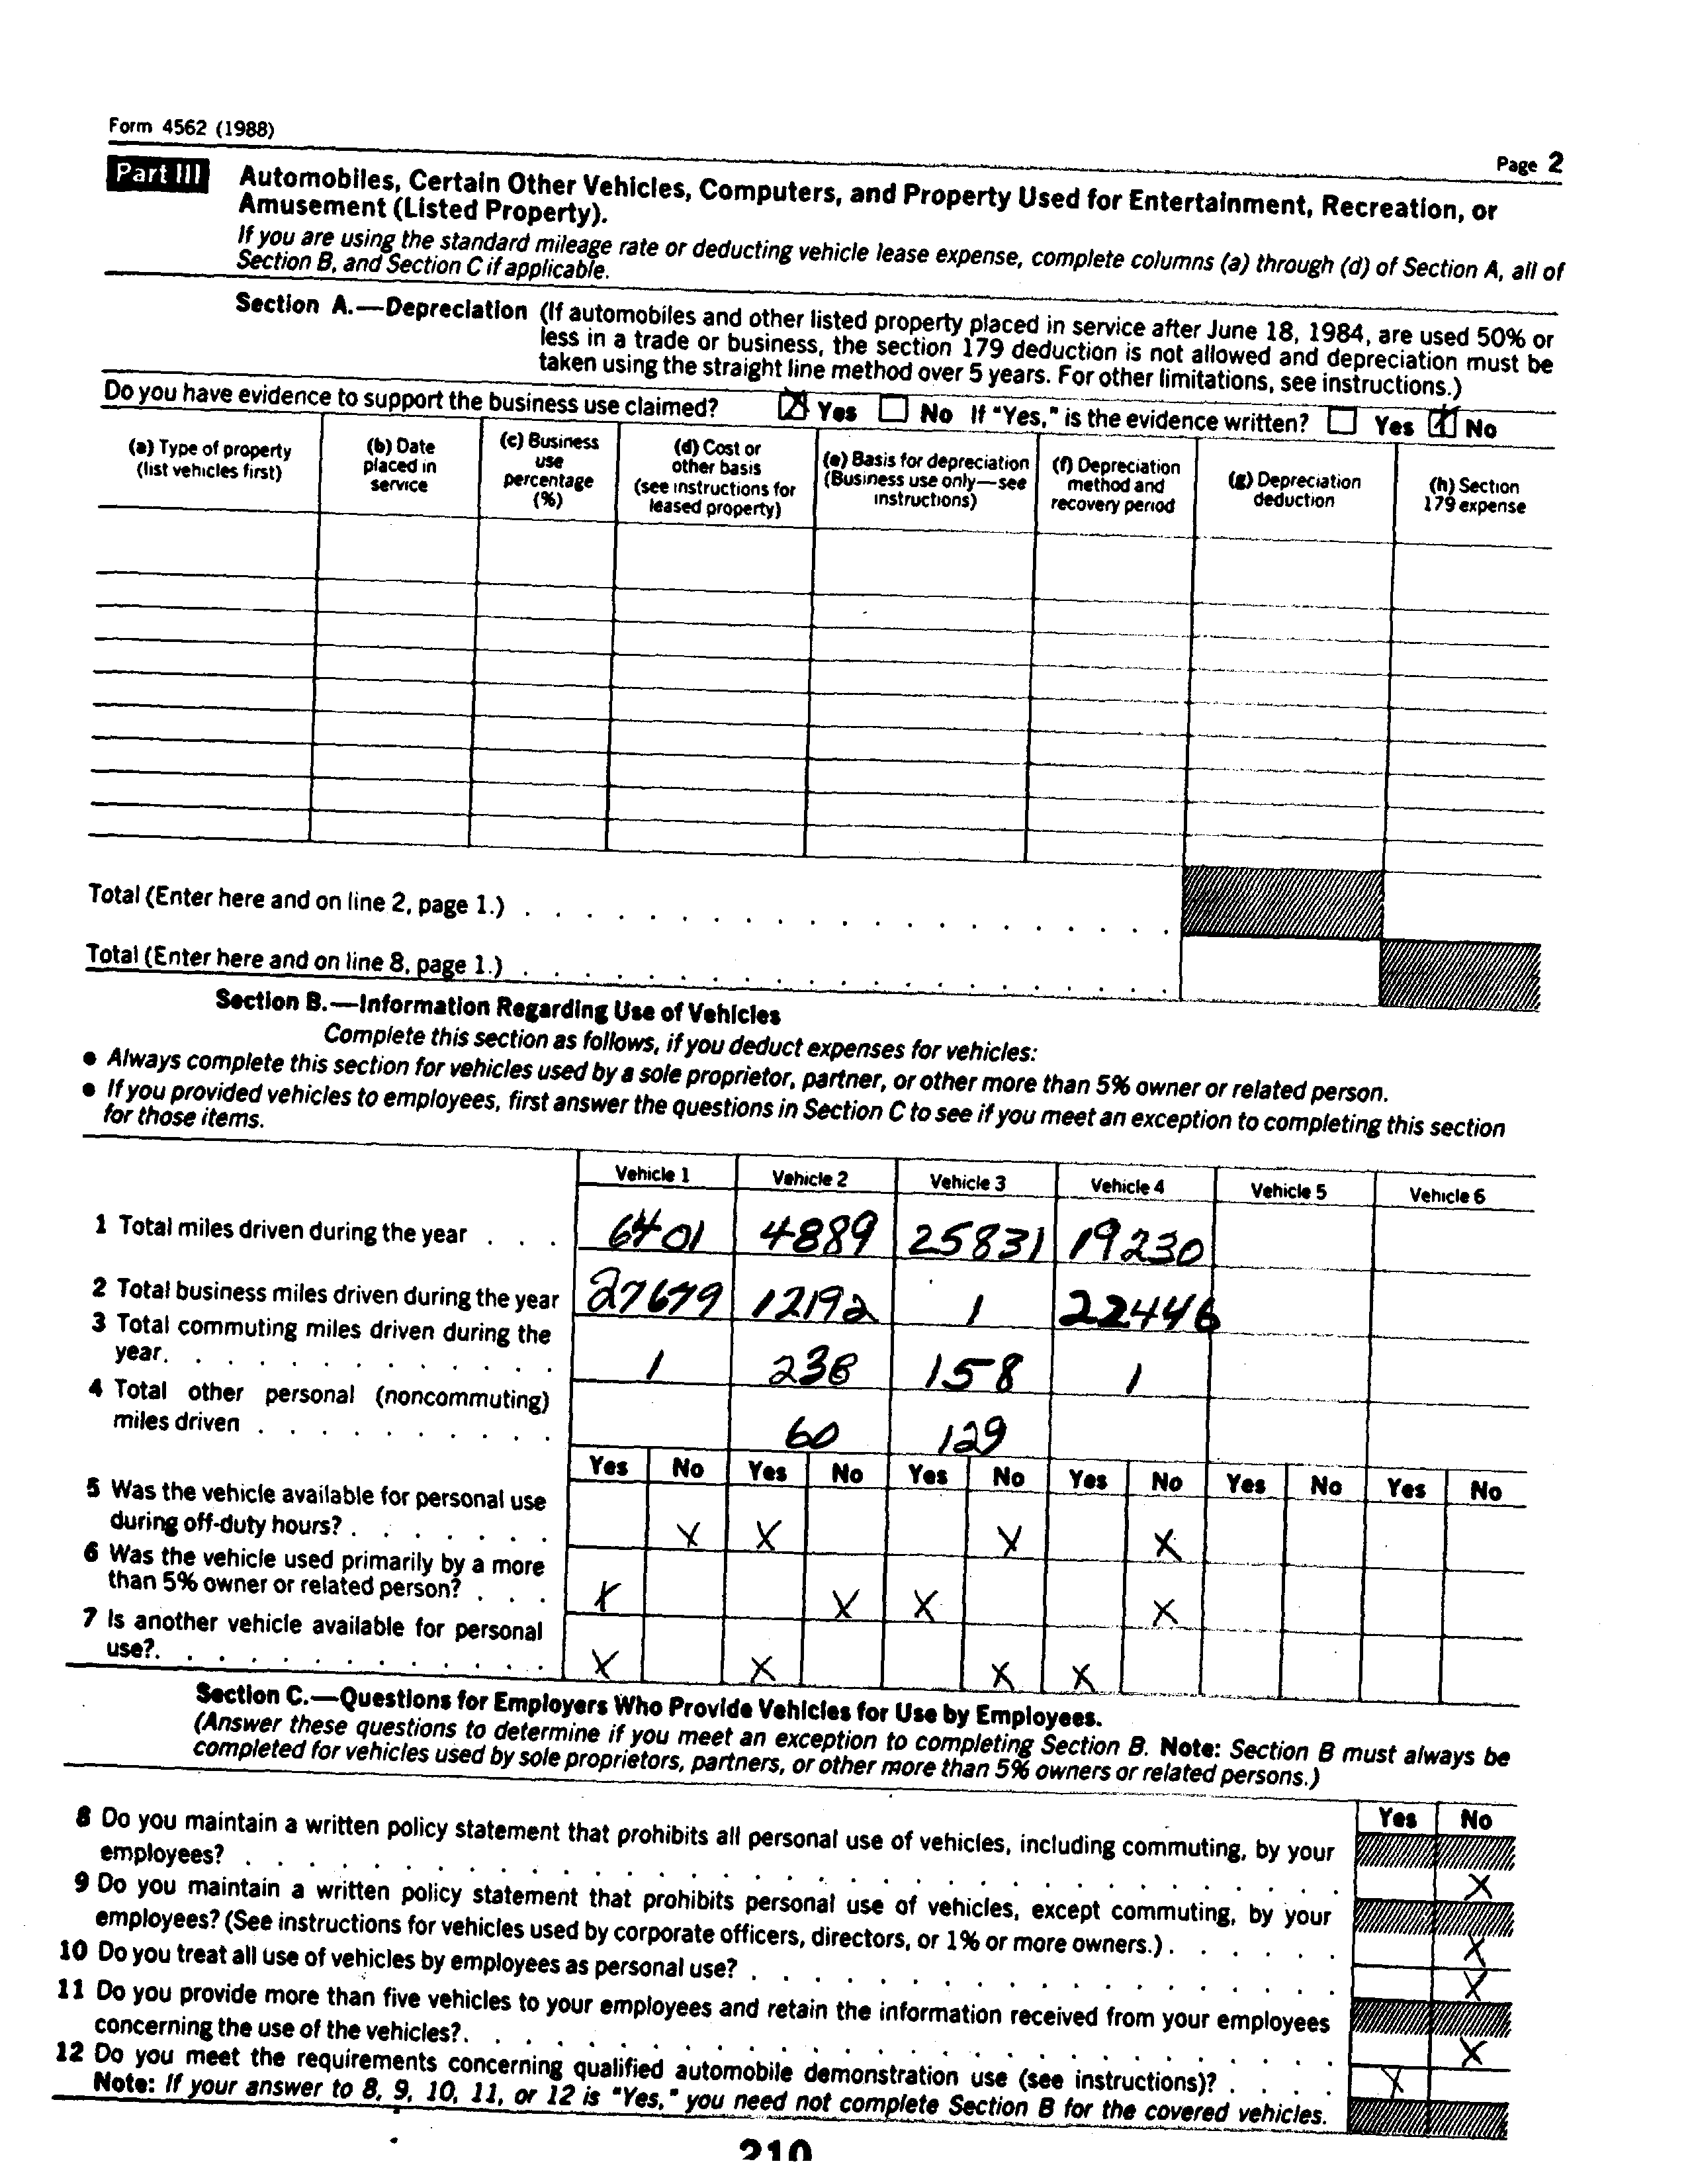 Form 4562 (1988)
Page 2
Part III Automobiles, Certain Other Vehicles, Computers, and Property Used for Entertainment, Recreation, or
Amusement (Listed Property).
If you are using the standard mileage rate or deducting vehicle lease expense, complete columns (a) through (d) of Section A, all of
Section B, and Section C if applicable.
Section A.—Depreciation (If automobiles and other listed property placed in service after June 18, 1984, are used 50% or
less in a trade or business, the section 179 deduction is not allowed and depreciation must be
taken using the straight line method over 5 years. For other limitations, see instructions.)
Do you have evidence to support the business use claimed? X Yes No If "Yes," is the evidence written? Yes X No
(a) Type of property
(list vehicles first)
(b) Date
placed in
service
(c) Business
use
percentage
(%)
(d) Cost or
other basis
(see instructions for
leased property)
(e) Basis for depreciation
(Business use only—see
instructions)
(f) Depreciation
method and
recovery period
(g) Depreciation
deduction
(h) Section
179 expense
Total (Enter here and on line 2, page 1.) . . . . . . . . . . . . . . . . . . . . .
Total (Enter here and on line 8, page 1.) . . . . . . . . . . . . . . . . . . . . .
Section B.—Information Regarding Use of Vehicles
Complete this section as follows, if you deduct expenses for vehicles:
● Always complete this section for vehicles used by a sole proprietor, partner, or other more than 5% owner or related person.
● If you provided vehicles to employees, first answer the questions in Section C to see if you meet an exception to completing this section
for those items.
Vehicle 1 Vehicle 2 Vehicle 3 Vehicle 4 Vehicle 5 Vehicle 6
1 Total miles driven during the year . . . 6401 4889 25831 19230
2 Total business miles driven during the year 27679 12192 1 22446
3 Total commuting miles driven during the
year. . . . . . . . . . . . . 1 238 158 1
4 Total other personal (noncommuting)
miles driven . . . . . . . . . . 60 129
Yes No Yes No Yes No Yes No Yes No Yes No
5 Was the vehicle available for personal use
during off-duty hours? . . . . . . . X X X X
6 Was the vehicle used primarily by a more
than 5% owner or related person? . . . X X X X
7 Is another vehicle available for personal
use?. . . . . . . . . . . . . X X X X
Section C.—Questions for Employers Who Provide Vehicles for Use by Employees.
(Answer these questions to determine if you meet an exception to completing Section B. Note: Section B must always be
completed for vehicles used by sole proprietors, partners, or other more than 5% owners or related persons.)
Yes No
8 Do you maintain a written policy statement that prohibits all personal use of vehicles, including commuting, by your
employees? . . . . . . . . . . . . . . . . . . . . . X
9 Do you maintain a written policy statement that prohibits personal use of vehicles, except commuting, by your
employees? (See instructions for vehicles used by corporate officers, directors, or 1% or more owners.) . . . . . . X
10 Do you treat all use of vehicles by employees as personal use? . . . . . . . . . . . . . . . . . . . X
11 Do you provide more than five vehicles to your employees and retain the information received from your employees
concerning the use of the vehicles?. . . . . . . . . . . . . . . . . . . . . X
12 Do you meet the requirements concerning qualified automobile demonstration use (see instructions)? . . . . X
Note: If your answer to 8, 9, 10, 11, or 12 is "Yes," you need not complete Section B for the covered vehicles.
210